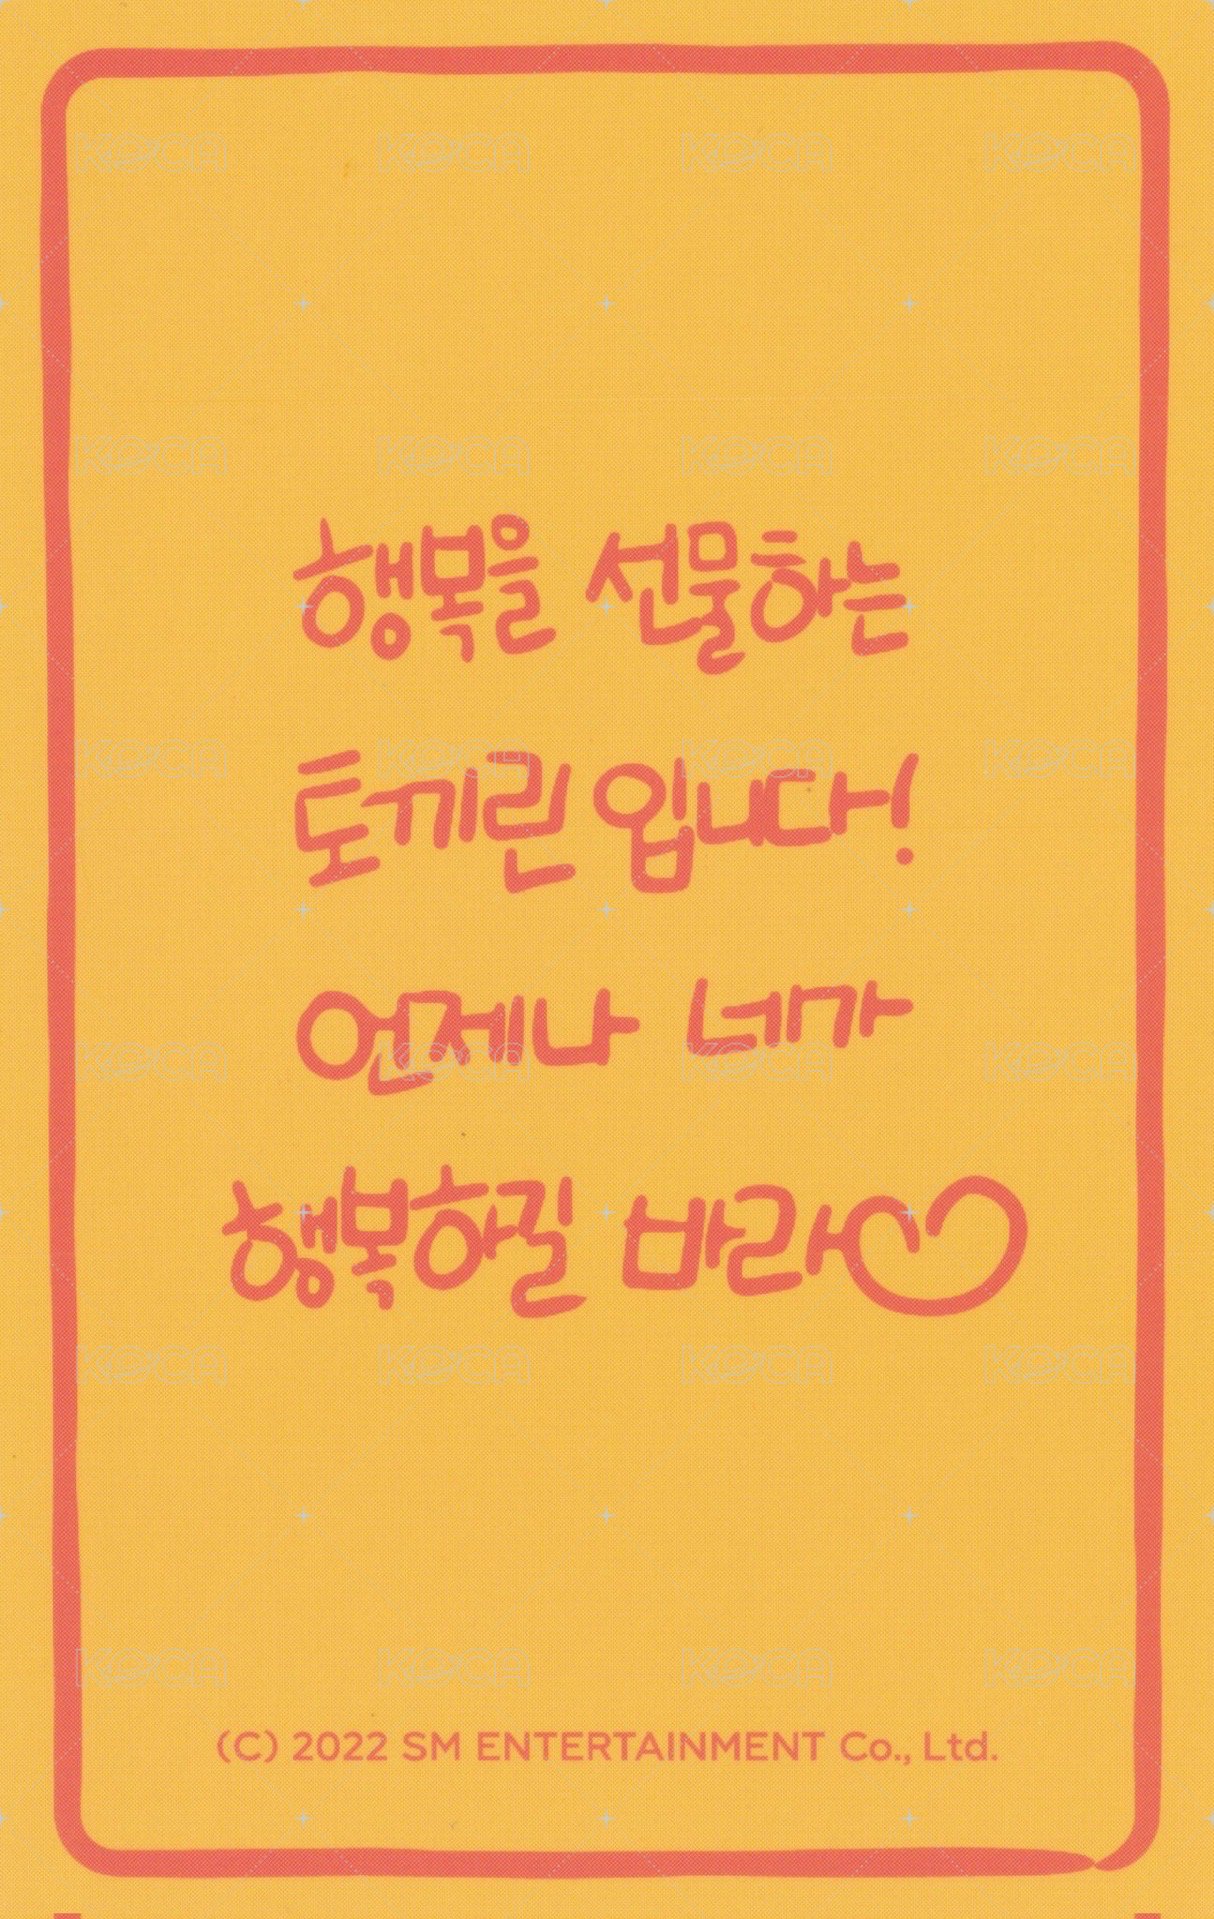 행복을 선물하는
토끼린 입니다!
언제나 네가
행복하길 바라♡
(C) 2022 SM ENTERTAINMENT Co., Ltd.